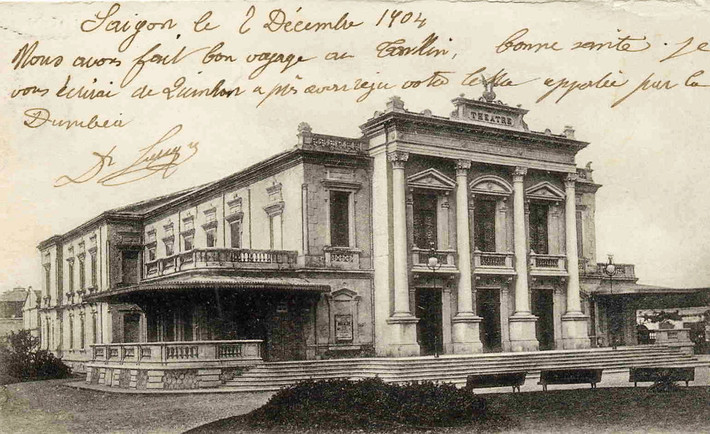 Saigon le 2 Décembre 1904
Nous avons fait bon voyage au Tonkin, bonne santé. je
vous écrirai de Quinhon après avoir reçu votre lettre apportée par la
Dumbéa
Dr
THEATRE